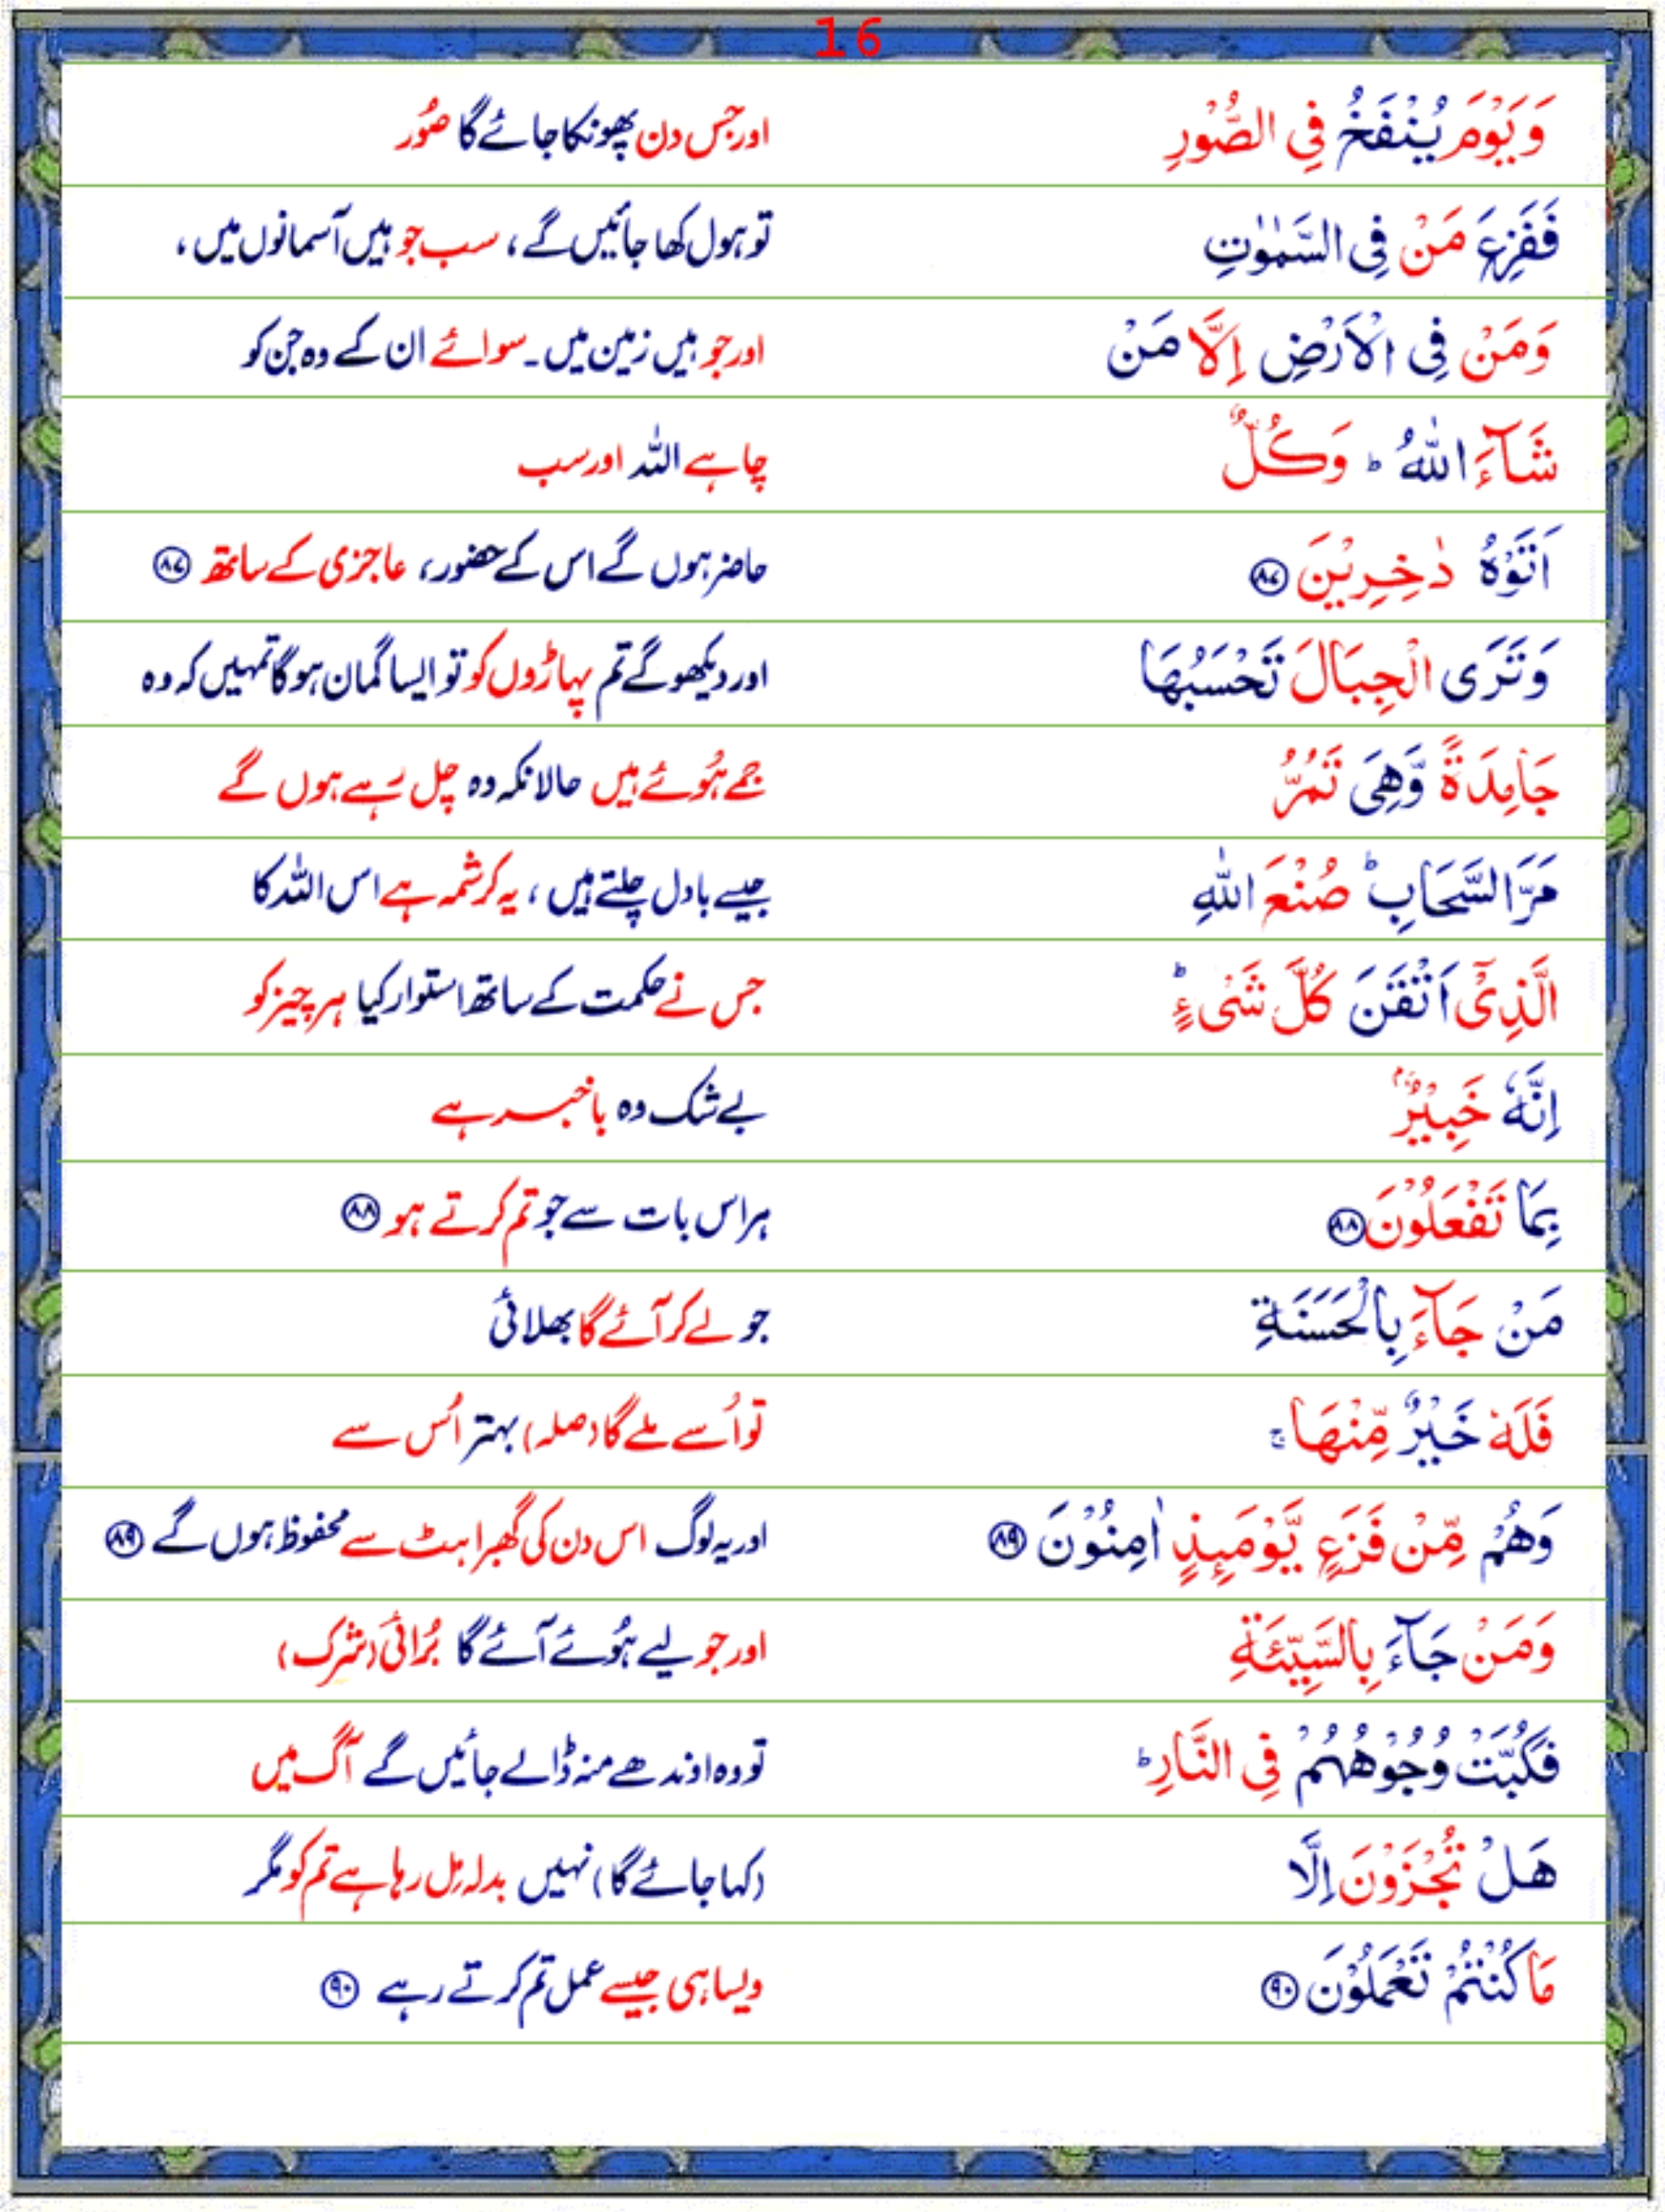 16
وَيَوْمَ يُنْفَخُ فِى الصُّوْرِ اور جس دن پھونکا جائے گا صُور
فَفَزِعَ مَنْ فِى السَّمٰوٰتِ تو ہول کھا جائیں گے، سب جو ہیں آسمانوں میں،
وَمَنْ فِى الْاَرْضِ اِلَّا مَنْ اور جو ہیں زمین میں۔ سوائے ان کے وہ جن کو
شَآءَ اللّٰهُ ؕ وَكُلٌّ چاہے اللہ اور سب
اَتَوْهُ دٰخِرِيْنَ ۸۷ حاضر ہوں گے اس کے حضور، عاجزی کے ساتھ ۸۷
وَتَرَى الْجِبَالَ تَحْسَبُهَا اور دیکھو گے تم پہاڑوں کو تو ایسا گمان ہو گا تمہیں کہ وہ
جَامِدَةً وَّهِىَ تَمُرُّ جمے ہُوئے ہیں حالانکہ وہ چل رہے ہوں گے
مَرَّ السَّحَابِ ؕ صُنْعَ اللّٰهِ جیسے بادل چلتے ہیں، یہ کرشمہ ہے اس اللہ کا
الَّذِىْۤ اَتْقَنَ كُلَّ شَىْءٍ ؕ جس نے حکمت کے ساتھ استوار کیا ہر چیز کو
اِنَّهٗ خَبِيْرٌۢ بے شک وہ باخبر ہے
بِمَا تَفْعَلُوْنَ ۸۸ ہر اس بات سے جو تم کرتے ہو ۸۸
مَنْ جَآءَ بِالْحَسَنَةِ جو لے کر آئے گا بھلائی
فَلَهٗ خَيْرٌ مِّنْهَا ۚ تو اُسے ملے گا (صلہ) بہتر اُس سے
وَهُمْ مِّنْ فَزَعٍ يَّوْمَٮِٕذٍ اٰمِنُوْنَ ۸۹ اور یہ لوگ اس دن کی گھبراہٹ سے محفوظ ہوں گے ۸۹
وَمَنْ جَآءَ بِالسَّيِّئَةِ اور جو لیے ہُوئے آئے گا بُرائی (شرک)
فَكُبَّتْ وُجُوْهُهُمْ فِى النَّارِ ؕ تو وہ اوندھے منہ ڈالے جائیں گے آگ میں
هَلْ تُجْزَوْنَ اِلَّا (کہا جائے گا) نہیں بدلہ مِل رہا ہے تم کو مگر
مَا كُنْتُمْ تَعْمَلُوْنَ ۹۰ ویسا ہی جیسے عمل تم کرتے رہے ۹۰